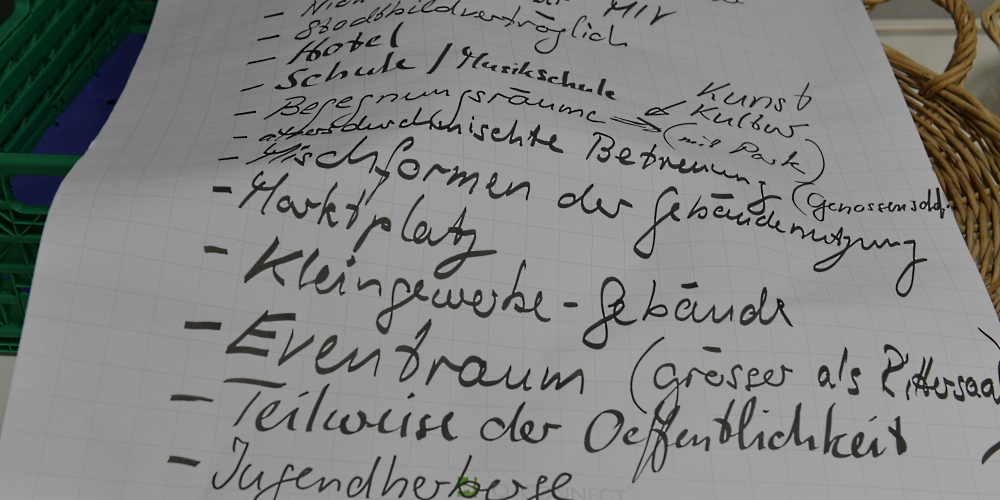 MIV
- Stadtbildverträglich
- Hotel
- Schule / Musikschule
- Begegnungsräume
Kunst
Kultur
(mit Park)
- altersdurchmischte Betreuung (Genossenschaft.
- Mischformen der Gebäudenutzung
- Marktplatz
- Kleingewerbe-Gebäude
- Eventraum (grösser als Rittersaal)
- Teilweise der Oeffentlichkeit
- Jugendherberge